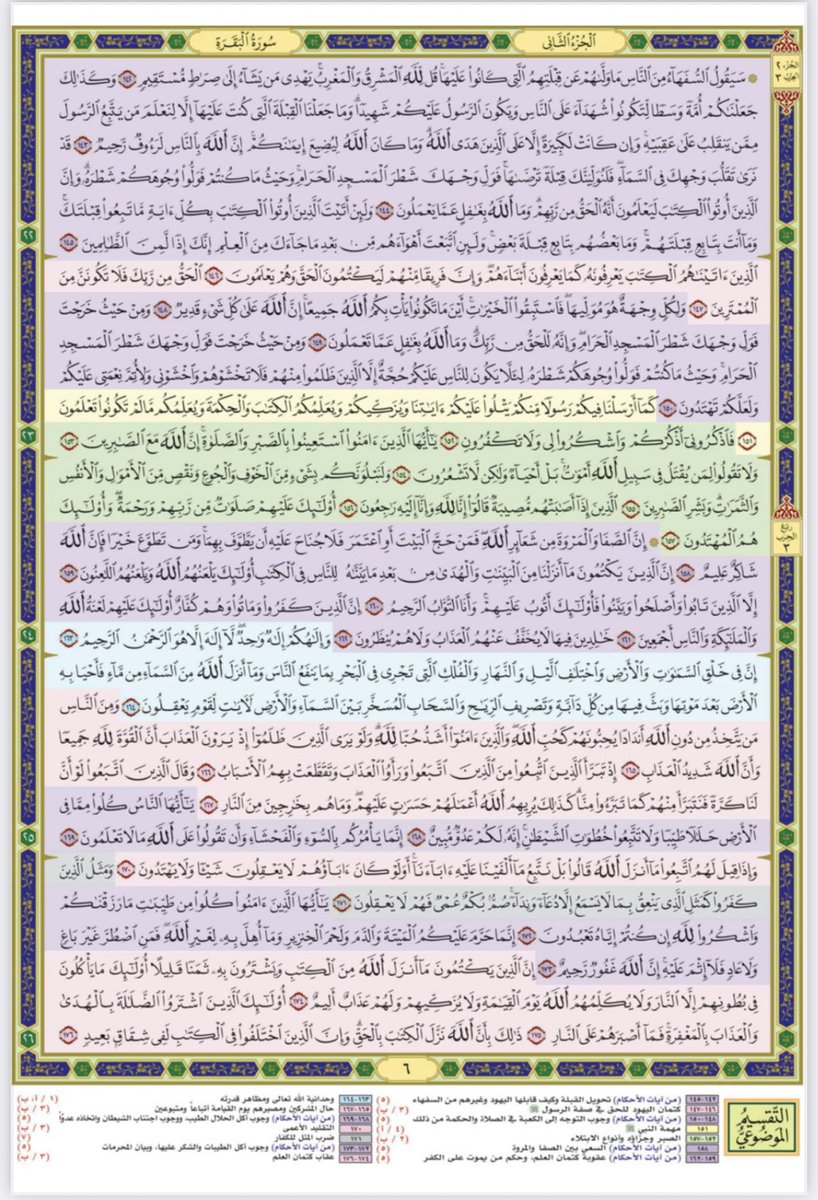 الجزء الثاني
سورة البقرة
الجزء ٢
الحزب ٣
۞ سيقول السفهاء من الناس ما ولىٰهم عن قبلتهم التي كانوا عليها قل لله المشرق والمغرب يهدي من يشاء إلى صرٰط مستقيم ١٤٢ وكذٰلك
جعلنٰكم أمة وسطا لتكونوا شهداء على الناس ويكون الرسول عليكم شهيدا وما جعلنا القبلة التي كنت عليها إلا لنعلم من يتبع الرسول
ممن ينقلب على عقبيه وإن كانت لكبيرة إلا على الذين هدى الله وما كان الله ليضيع إيمٰنكم إن الله بالناس لرءوف رحيم ١٤٣ قد
نرى تقلب وجهك في السماء فلنولينك قبلة ترضىٰها فول وجهك شطر المسجد الحرام وحيث ما كنتم فولوا وجوهكم شطره وإن
الذين أوتوا الكتٰب ليعلمون أنه الحق من ربهم وما الله بغٰفل عما يعملون ١٤٤ ولئن أتيت الذين أوتوا الكتٰب بكل ءاية ما تبعوا قبلتك
وما أنت بتابع قبلتهم وما بعضهم بتابع قبلة بعض ولئن اتبعت أهواءهم من بعد ما جاءك من العلم إنك إذا لمن الظٰلمين ١٤٥
الذين ءاتينٰهم الكتٰب يعرفونه كما يعرفون أبناءهم وإن فريقا منهم ليكتمون الحق وهم يعلمون ١٤٦ الحق من ربك فلا تكونن من
الممترين ١٤٧ ولكل وجهة هو موليها فاستبقوا الخيرٰت أين ما تكونوا يأت بكم الله جميعا إن الله على كل شيء قدير ١٤٨ ومن حيث خرجت
فول وجهك شطر المسجد الحرام وإنه للحق من ربك وما الله بغٰفل عما تعملون ١٤٩ ومن حيث خرجت فول وجهك شطر المسجد
الحرام وحيث ما كنتم فولوا وجوهكم شطره لئلا يكون للناس عليكم حجة إلا الذين ظلموا منهم فلا تخشوهم واخشوني ولأتم نعمتي عليكم
ولعلكم تهتدون ١٥٠ كما أرسلنا فيكم رسولا منكم يتلوا عليكم ءايٰتنا ويزكيكم ويعلمكم الكتٰب والحكمة ويعلمكم ما لم تكونوا تعلمون
١٥١ فاذكروني أذكركم واشكروا لي ولا تكفرون ١٥٢ يٰأيها الذين ءامنوا استعينوا بالصبر والصلوٰة إن الله مع الصٰبرين ١٥٣
ولا تقولوا لمن يقتل في سبيل الله أموٰت بل أحياء ولٰكن لا تشعرون ١٥٤ ولنبلونكم بشيء من الخوف والجوع ونقص من الأموٰل والأنفس
والثمرٰت وبشر الصٰبرين ١٥٥ الذين إذا أصٰبتهم مصيبة قالوا إنا لله وإنا إليه رٰجعون ١٥٦ أولٰئك عليهم صلوٰت من ربهم ورحمة وأولٰئك
هم المهتدون ١٥٧ ۞ إن الصفا والمروة من شعائر الله فمن حج البيت أو اعتمر فلا جناح عليه أن يطوف بهما ومن تطوع خيرا فإن الله
شاكر عليم ١٥٨ إن الذين يكتمون ما أنزلنا من البينٰت والهدى من بعد ما بينٰه للناس في الكتٰب أولٰئك يلعنهم الله ويلعنهم اللٰعنون ١٥٩
إلا الذين تابوا وأصلحوا وبينوا فأولٰئك أتوب عليهم وأنا التواب الرحيم ١٦٠ إن الذين كفروا وماتوا وهم كفار أولٰئك عليهم لعنة الله
والملٰئكة والناس أجمعين ١٦١ خٰلدين فيها لا يخفف عنهم العذاب ولا هم ينظرون ١٦٢ وإلٰهكم إلٰه وٰحد لا إلٰه إلا هو الرحمٰن الرحيم ١٦٣
إن في خلق السمٰوٰت والأرض واختلٰف اليل والنهار والفلك التي تجري في البحر بما ينفع الناس وما أنزل الله من السماء من ماء فأحيا به
الأرض بعد موتها وبث فيها من كل دابة وتصريف الريٰح والسحاب المسخر بين السماء والأرض لأيٰت لقوم يعقلون ١٦٤ ومن الناس
من يتخذ من دون الله أندادا يحبونهم كحب الله والذين ءامنوا أشد حبا لله ولو يرى الذين ظلموا إذ يرون العذاب أن القوة لله جميعا
وأن الله شديد العذاب ١٦٥ إذ تبرأ الذين اتبعوا من الذين اتبعوا ورأوا العذاب وتقطعت بهم الأسباب ١٦٦ وقال الذين اتبعوا لو أن
لنا كرة فنتبرأ منهم كما تبرءوا منا كذٰلك يريهم الله أعمٰلهم حسرٰت عليهم وما هم بخٰرجين من النار ١٦٧ يٰأيها الناس كلوا مما في
الأرض حلٰلا طيبا ولا تتبعوا خطوٰت الشيطٰن إنه لكم عدو مبين ١٦٨ إنما يأمركم بالسوء والفحشاء وأن تقولوا على الله ما لا تعلمون ١٦٩
وإذا قيل لهم اتبعوا ما أنزل الله قالوا بل نتبع ما ألفينا عليه ءاباءنا أولو كان ءاباؤهم لا يعقلون شيئا ولا يهتدون ١٧٠ ومثل الذين
كفروا كمثل الذي ينعق بما لا يسمع إلا دعاء ونداء صم بكم عمي فهم لا يعقلون ١٧١ يٰأيها الذين ءامنوا كلوا من طيبٰت ما رزقنٰكم
واشكروا لله إن كنتم إياه تعبدون ١٧٢ إنما حرم عليكم الميتة والدم ولحم الخنزير وما أهل به لغير الله فمن اضطر غير باغ
ولا عاد فلا إثم عليه إن الله غفور رحيم ١٧٣ إن الذين يكتمون ما أنزل الله من الكتٰب ويشترون به ثمنا قليلا أولٰئك ما يأكلون
في بطونهم إلا النار ولا يكلمهم الله يوم القيٰمة ولا يزكيهم ولهم عذاب أليم ١٧٤ أولٰئك الذين اشتروا الضلٰلة بالهدى
والعذاب بالمغفرة فما أصبرهم على النار ١٧٥ ذٰلك بأن الله نزل الكتٰب بالحق وإن الذين اختلفوا في الكتٰب لفي شقاق بعيد ١٧٦
ربع
الحزب
٣
٢٢
٢٣
٢٤
٢٥
٢٦
٦
التقسيم
الموضوعي
١٤٢-١٤٥ (من آيات الأحكام) تحويل القبلة وكيف قابلها اليهود وغيرهم من السفهاء (٥)
١٤٦-١٤٧ كتمان اليهود للحق في صفة الرسول ﷺ (٣ / ب)
١٤٨-١٥٠ (من آيات الأحكام) وجوب التوجه إلى الكعبة في الصلاة والحكمة من ذلك (٥)
١٥١ مهمة النبي ﷺ (٤ / أ)
١٥٢-١٥٧ الصبر وجزاؤه وأنواع الابتلاء (٢ / ب)
١٥٨ (من آيات الأحكام) السعي بين الصفا والمروة (٥)
١٥٩-١٦٢ (من آيات الأحكام) عقوبة كتمان العلم، وحكم من يموت على الكفر (٥)
١٦٣-١٦٤ وحدانية الله تعالى ومظاهر قدرته (١ / أ، ب)
١٦٥-١٦٧ حال المشركين ومصيرهم يوم القيامة أتباعاً ومتبوعين (٣ / ب)
١٦٨-١٦٩ (من آيات الأحكام) وجوب أكل الحلال الطيب، ووجوب اجتناب الشيطان واتخاذه عدواً (٥)
١٧٠ التقليد الأعمى (٣ / ب)
١٧١ ضرب المثل للكفار (٧)
١٧٢-١٧٣ (من آيات الأحكام) وجوب أكل الطيبات والشكر عليها، وبيان المحرمات (٥)
١٧٤-١٧٦ عقاب كتمان العلم (٣ / ب)